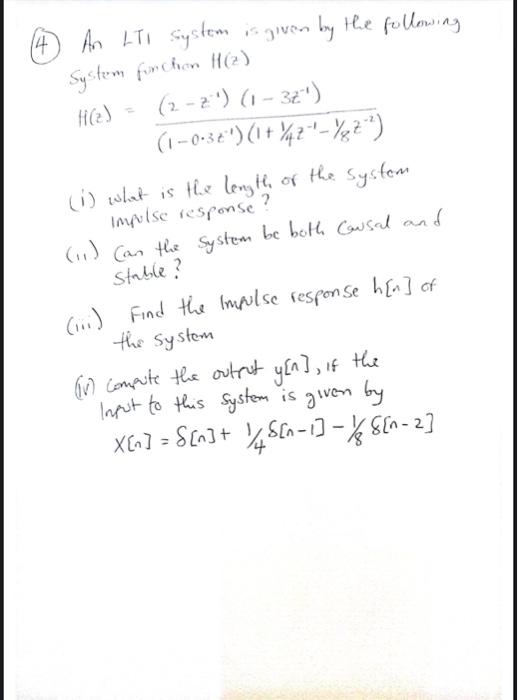 (4) An LTI system is given by the following
System function H(z)
H(z) = (2 - z⁻¹) (1 - 3z⁻¹) / (1 - 0.3z⁻¹)(1 + 1/4 z⁻¹ - 1/8 z⁻²)
(i) what is the length of the system
Impulse response?
(ii) Can the system be both Causal and
Stable?
(iii) Find the Impulse response h[n] of
the system
(iv) Compute the output y[n], if the
Input to this system is given by
X[n] = δ[n] + 1/4 δ[n-1] - 1/8 δ[n-2]